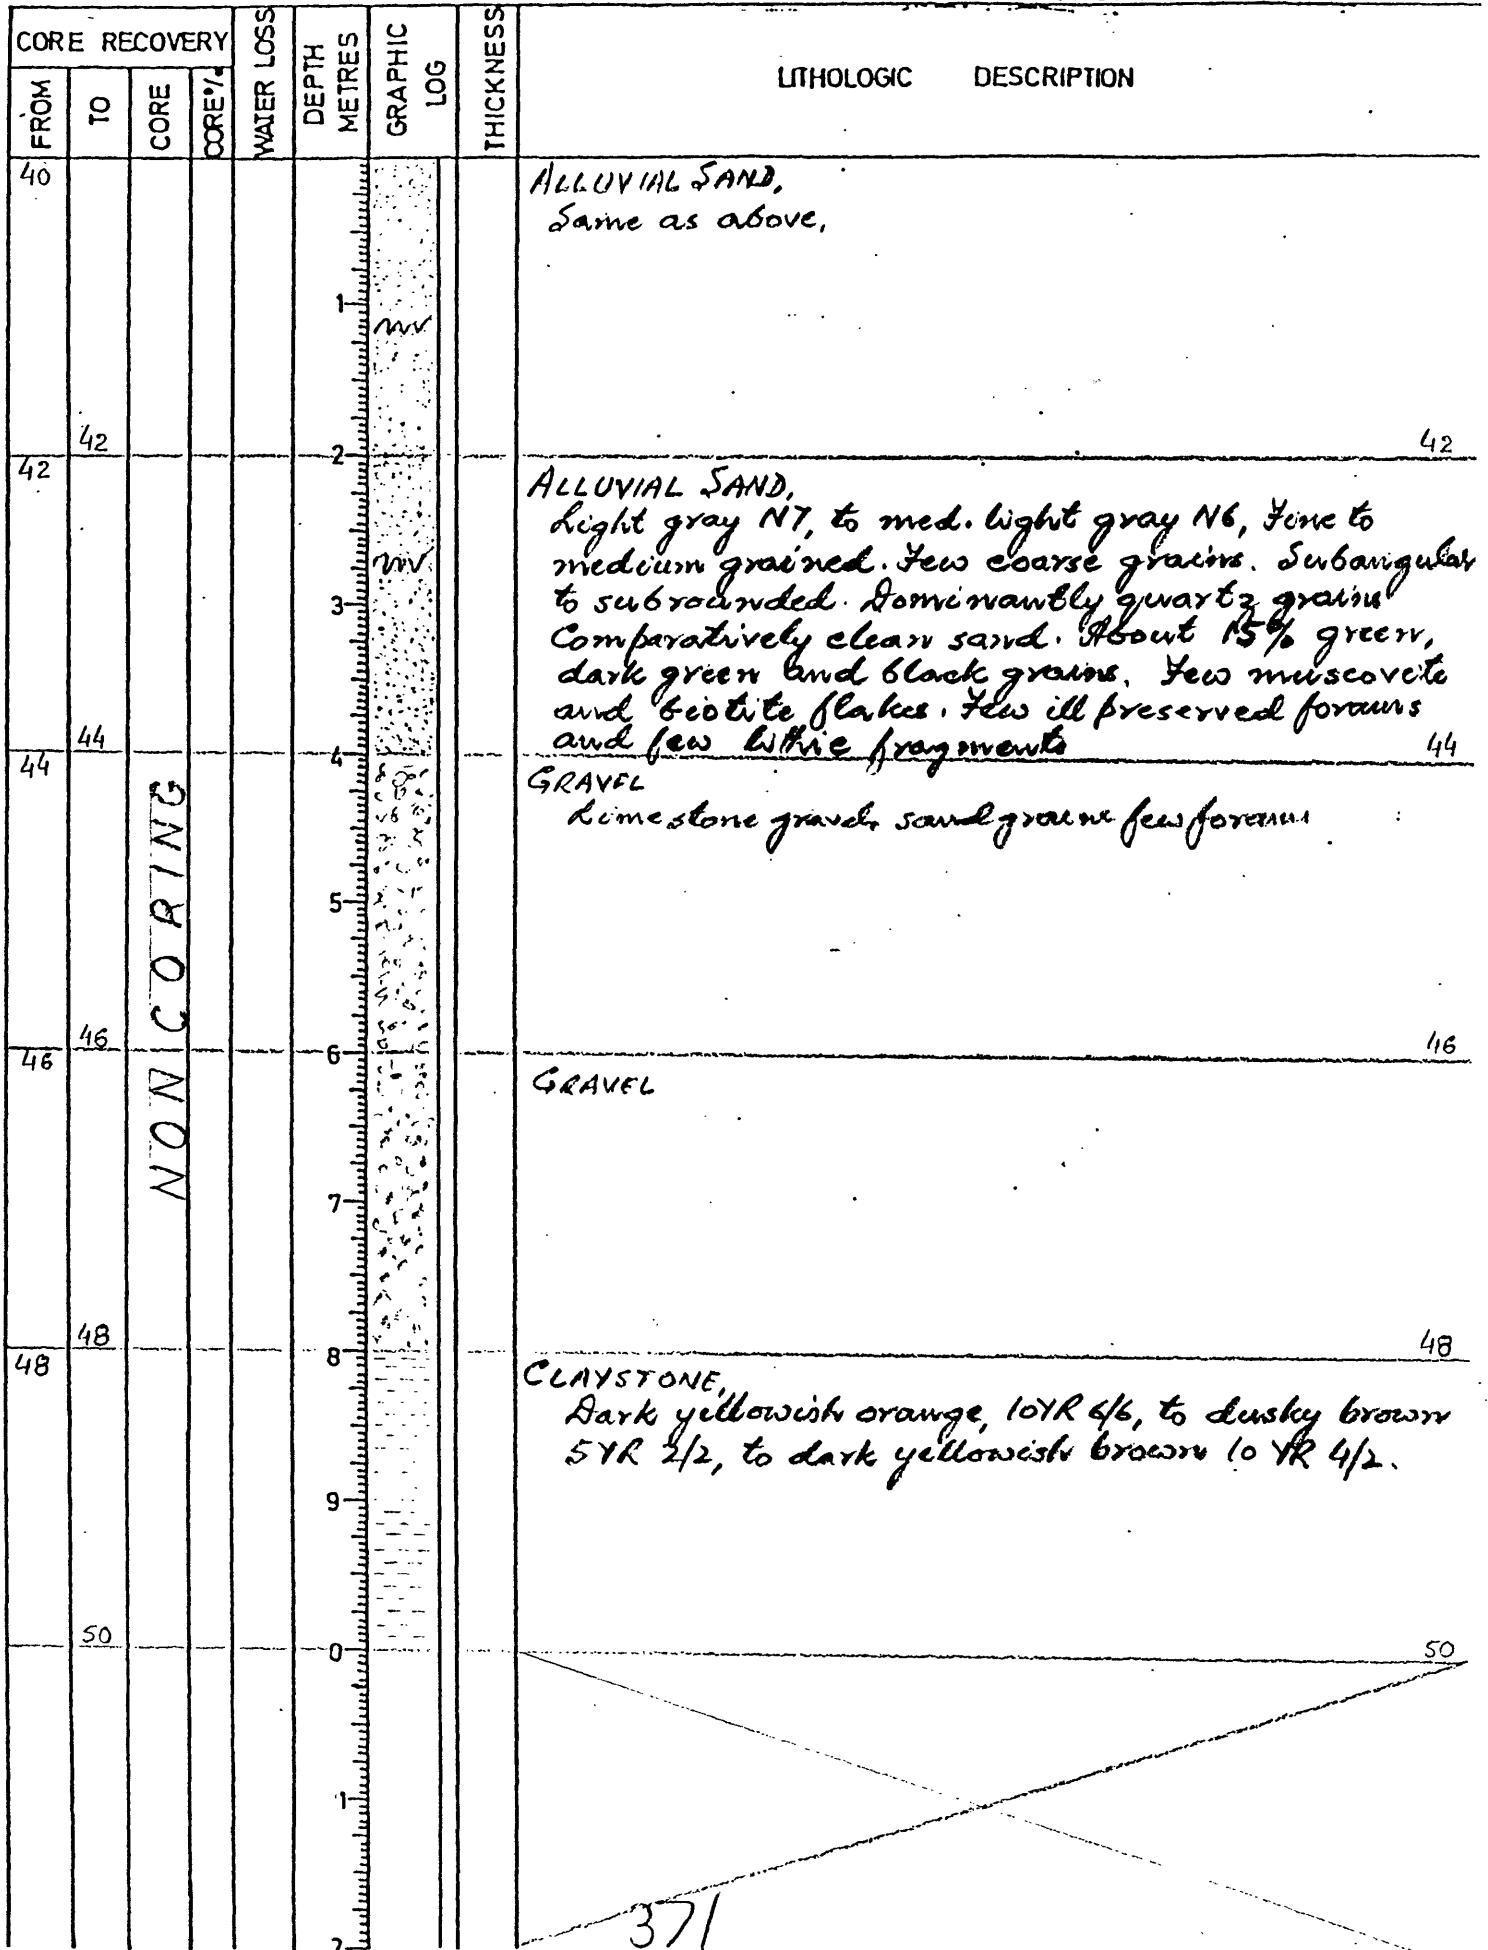 CORE RECOVERY
FROM
TO
CORE
CORE%
WATER LOSS
DEPTH
METRES
GRAPHIC
LOG
THICKNESS
LITHOLOGIC DESCRIPTION
40
ALLUVIAL SAND,
Same as above,
1
42
2
42
42
ALLUVIAL SAND,
Light gray N7, to med. light gray N6, Fine to
medium grained. Few coarse grains. Subangular
to subrounded. Dominantly quartz grains
3
Comparatively clean sand. About 15% green,
dark green and black grains. Few muscovite
and biotite flakes. Few ill preserved forams
and few lithic fragments
44
4
44
44
GRAVEL
Limestone gravel, sand grains few forams
NON CORING
5
46
6
46
46
GRAVEL
7
48
8
48
48
CLAYSTONE,
Dark yellowish orange, 10YR 6/6, to dusky brown
5YR 2/2, to dark yellowish brown 10 YR 4/2.
9
50
0
50
1
371
2